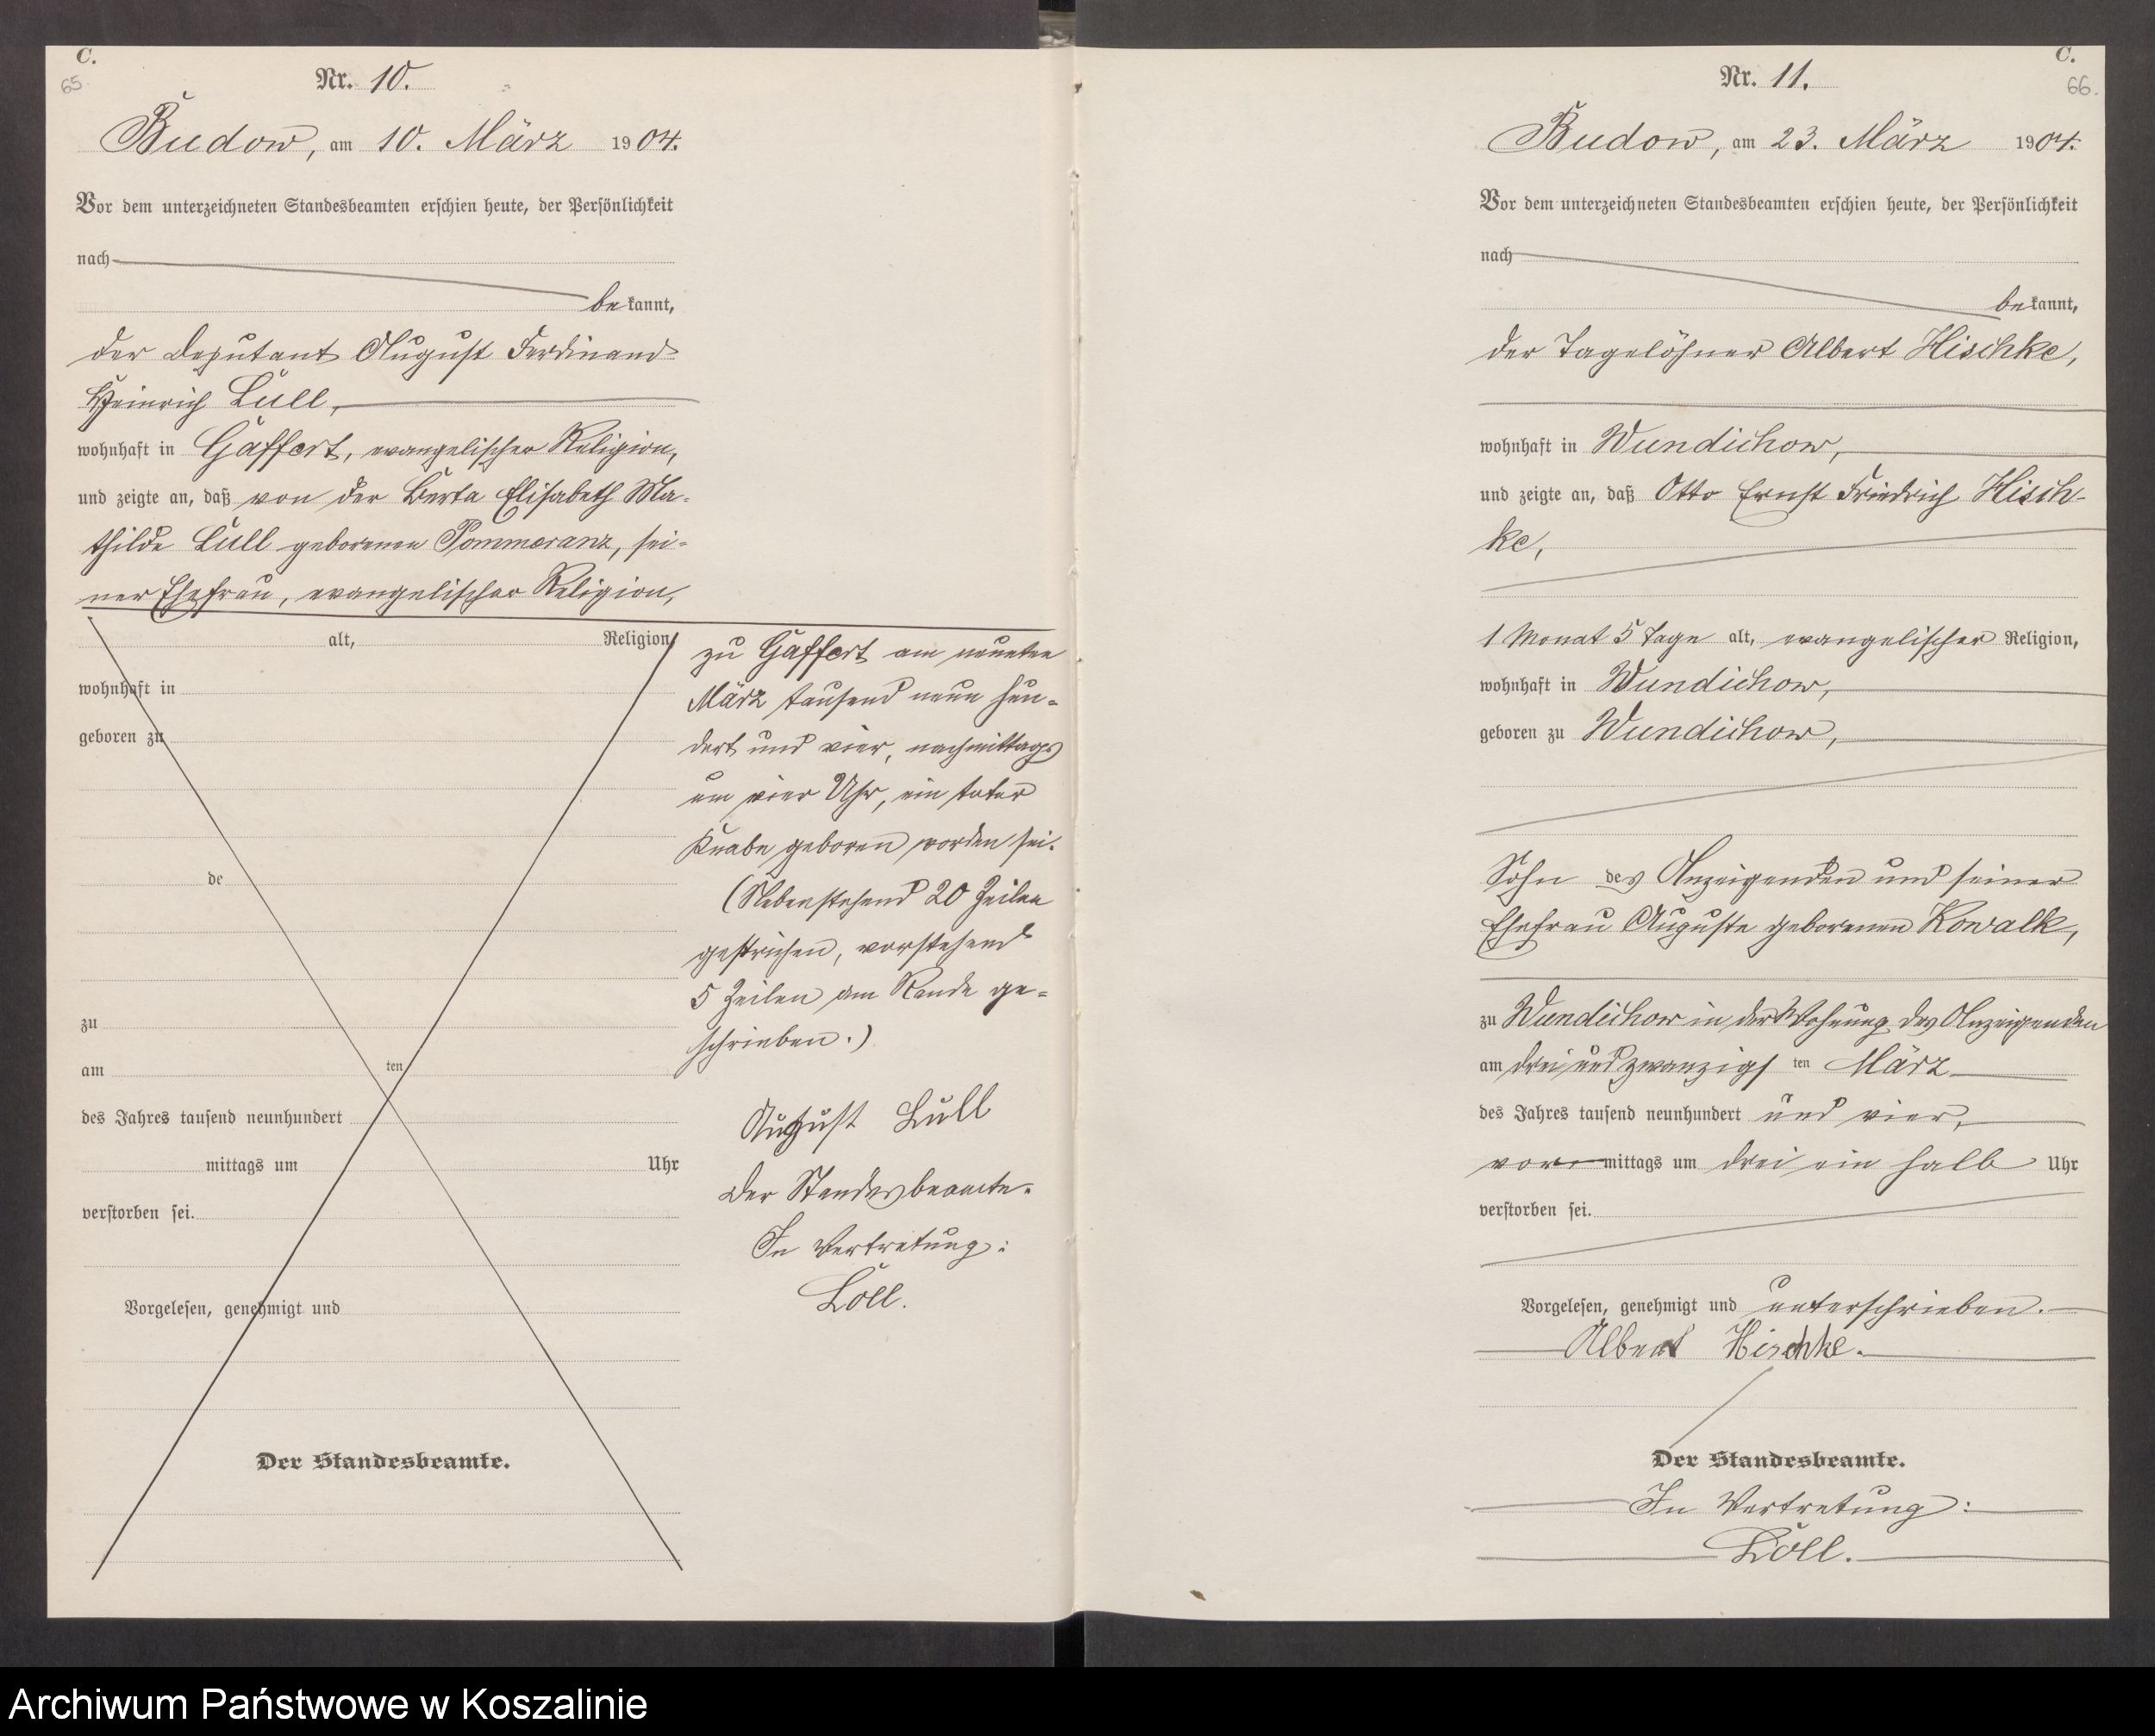 C.
65.
Nr. 10.
Budow, am 10. März 1904.
Vor dem unterzeichneten Standesbeamten erschien heute, der Persönlichkeit
nach
bekannt,
der Deputant August Ferdinand
Heinrich Lüll,
wohnhaft in Gaffert, evangelischer Religion,
und zeigte an, daß von der Berta Elisabeth Ma-
thilde Lüll geborenen Pommeranz, sei-
ner Ehefrau, evangelischer Religion,
alt, Religion,
wohnhaft in
geboren zu
de
zu
am ten
des Jahres tausend neunhundert
mittags um Uhr
verstorben sei.
Vorgelesen, genehmigt und
Der Standesbeamte.
zu Gaffert am neunten
März tausend neun hun-
dert und vier, nachmittags
um vier Uhr, ein toter
Knabe geboren worden sei.
(Nebenstehend 20 Zeilen
gestrichen, vorstehend
5 Zeilen am Rande ge-
schrieben.)
August Lüll
Der Standesbeamte.
In Vertretung:
Löll.
C.
66.
Nr. 11.
Budow, am 23. März 1904.
Vor dem unterzeichneten Standesbeamten erschien heute, der Persönlichkeit
nach
bekannt,
der Tagelöhner Albert Hischke,
wohnhaft in Wundichow,
und zeigte an, daß Otto Ernst Friedrich Hisch-
ke,
1 Monat 5 Tage alt, evangelischer Religion,
wohnhaft in Wundichow,
geboren zu Wundichow,
Sohn des Anzeigenden und seiner
Ehefrau Auguste geborenen Kowalk,
zu Wundichow in der Wohnung des Anzeigenden
am drei und zwanzigsten März
des Jahres tausend neunhundert und vier,
vormittags um drei ein halb Uhr
verstorben sei.
Vorgelesen, genehmigt und unterschrieben.
Albert Hischke.
Der Standesbeamte.
In Vertretung:
Löll.
Archiwum Państwowe w Koszalinie